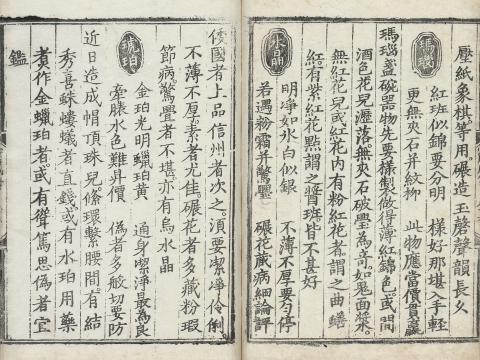 壓紙象棋等用碾造玉磬聲韻長久
瑪瑙
紅班似錦要分明 樣好那堪入手輕
更無夾石并紋柳 此物應當價貫
瑪瑙盞碗器物先要樣製做得薄紅錦色或間
酒色花兒瀝落無夾石破璺為奇如鬼面漿
無紅花兒或紅花內有粉紅花者謂之曲蟮
紅有紫紅花點謂之醬班皆不甚好
水晶
明凈如氷白似銀 不薄不厚要勻停
若遇粉霜并驚璺 碾花藏病細論評
倭國者上品信州者次之須要潔凈伶俐
不薄不厚素者尤佳碾花者多藏粉瑕
節病驚璺者不堪亦有烏水晶
琥珀
金珀光明蠟珀黄 通身潔淨最為良
牽膝水色難昇價 偽者多般切要防
近日造成帽頂珠兒絛環繫腰間有結
秀喜蛛螻蟻者直錢或有水珀用藥
煮作金蠟珀者或有聳篤思偽者宜
鑑